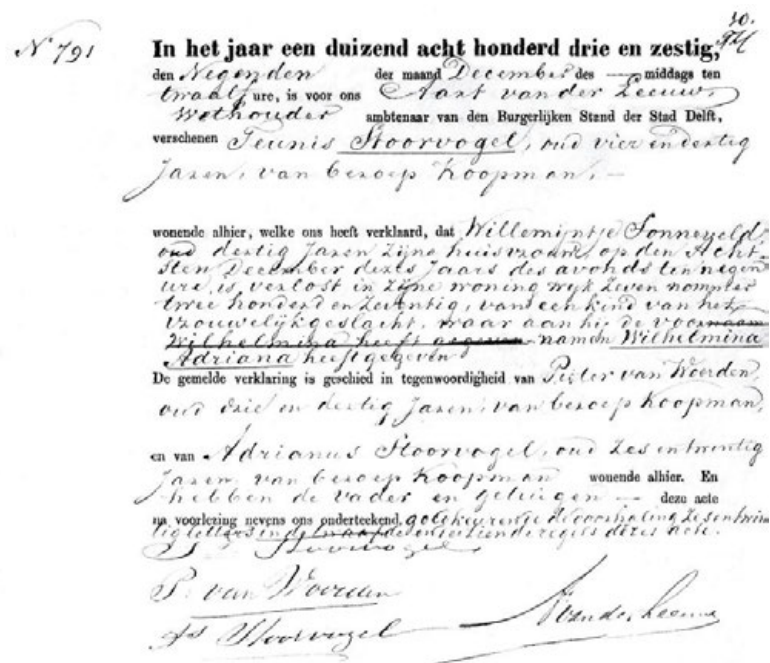 N° 791
In het jaar een duizend acht honderd drie en zestig,
den Negenden der maand December des — middags ten
twaalf ure, is voor ons Aart van der Leeuw,
Wethouder ambtenaar van den Burgerlijken Stand der Stad Delft,
verschenen Teunis Stoorvogel, oud vier en dertig
Jaren, van beroep Koopman, —
wonende alhier, welke ons heeft verklaard, dat Willemijntje Sonneveld
oud dertig Jaren Zijne huisvrouw, op den Acht-
sten December dezes Jaars des avonds ten negen
ure, is verlost in Zijne woning wijk Zeven nommer
twee honderd en Zeventig, van een kind van het
vrouwelijk geslacht, waar aan hij de voornaam
Wilhelmina heeft gegeven namen Wilhelmina
Adriana heeft gegeven
De gemelde verklaring is geschied in tegenwoordigheid van Pieter van Woerden,
oud drie en dertig Jaren, van beroep Koopman,
en van Adrianus Stoorvogel, oud Zes en twintig
Jaren, van beroep Koopman wonende alhier. En
hebben de vader en getuigen — deze acte
na voorlezing nevens ons onderteekend, goedkeurende de doorhaling Zes en twin
tig letters in de regels dezes acte.
Stoorvogel
P. van Woerden
As Stoorvogel
A van der Leeuw